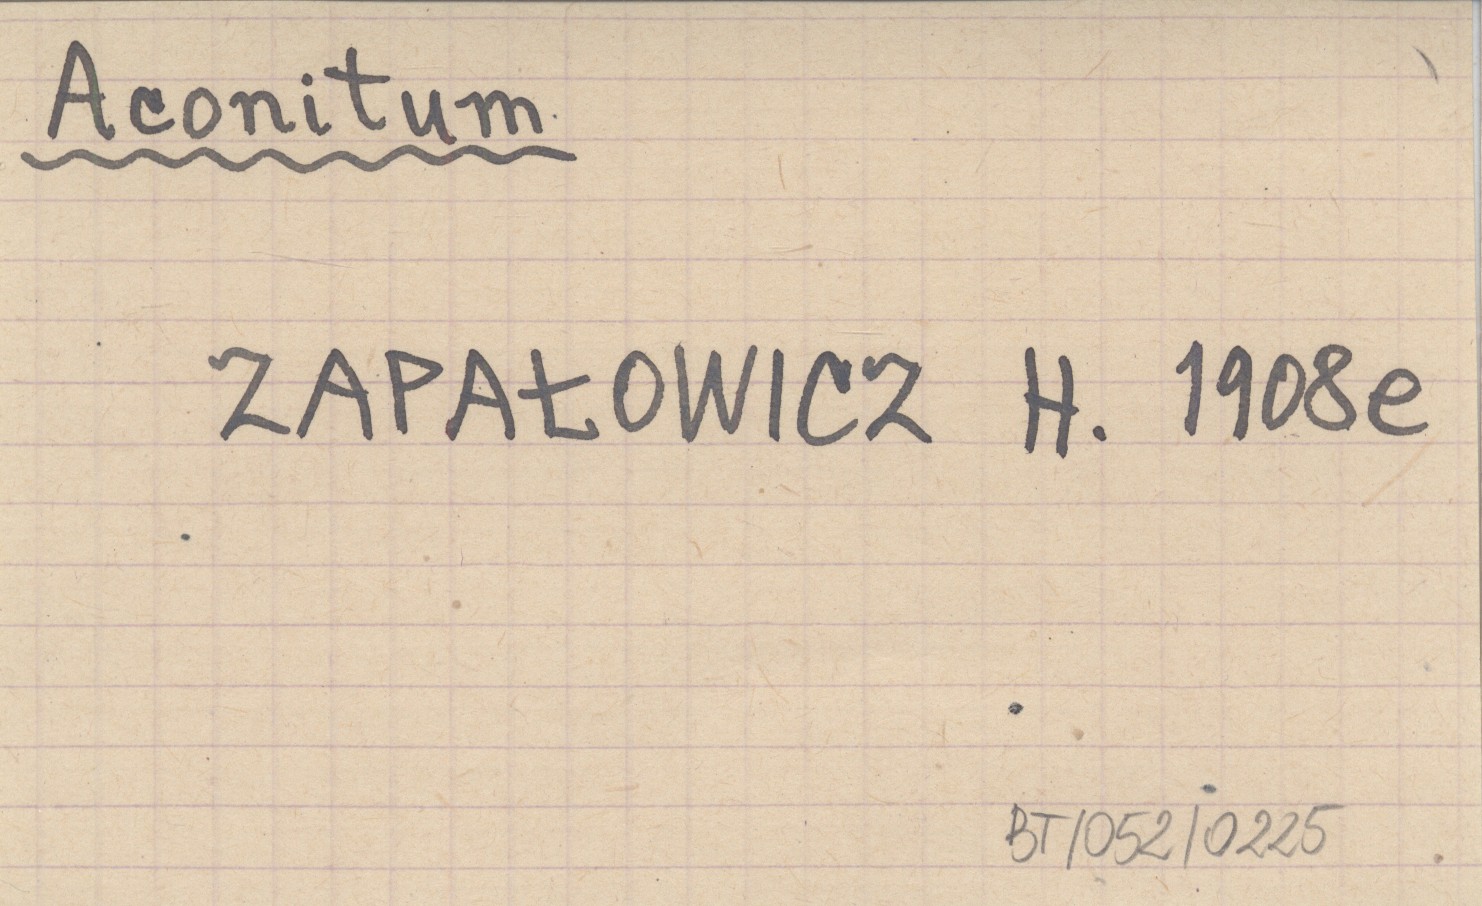 Aconitum
ZAPAŁOWICZ H. 1908e
BT/052/0225